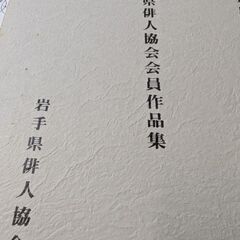 県俳人協会会員作品集
岩手県俳人協会